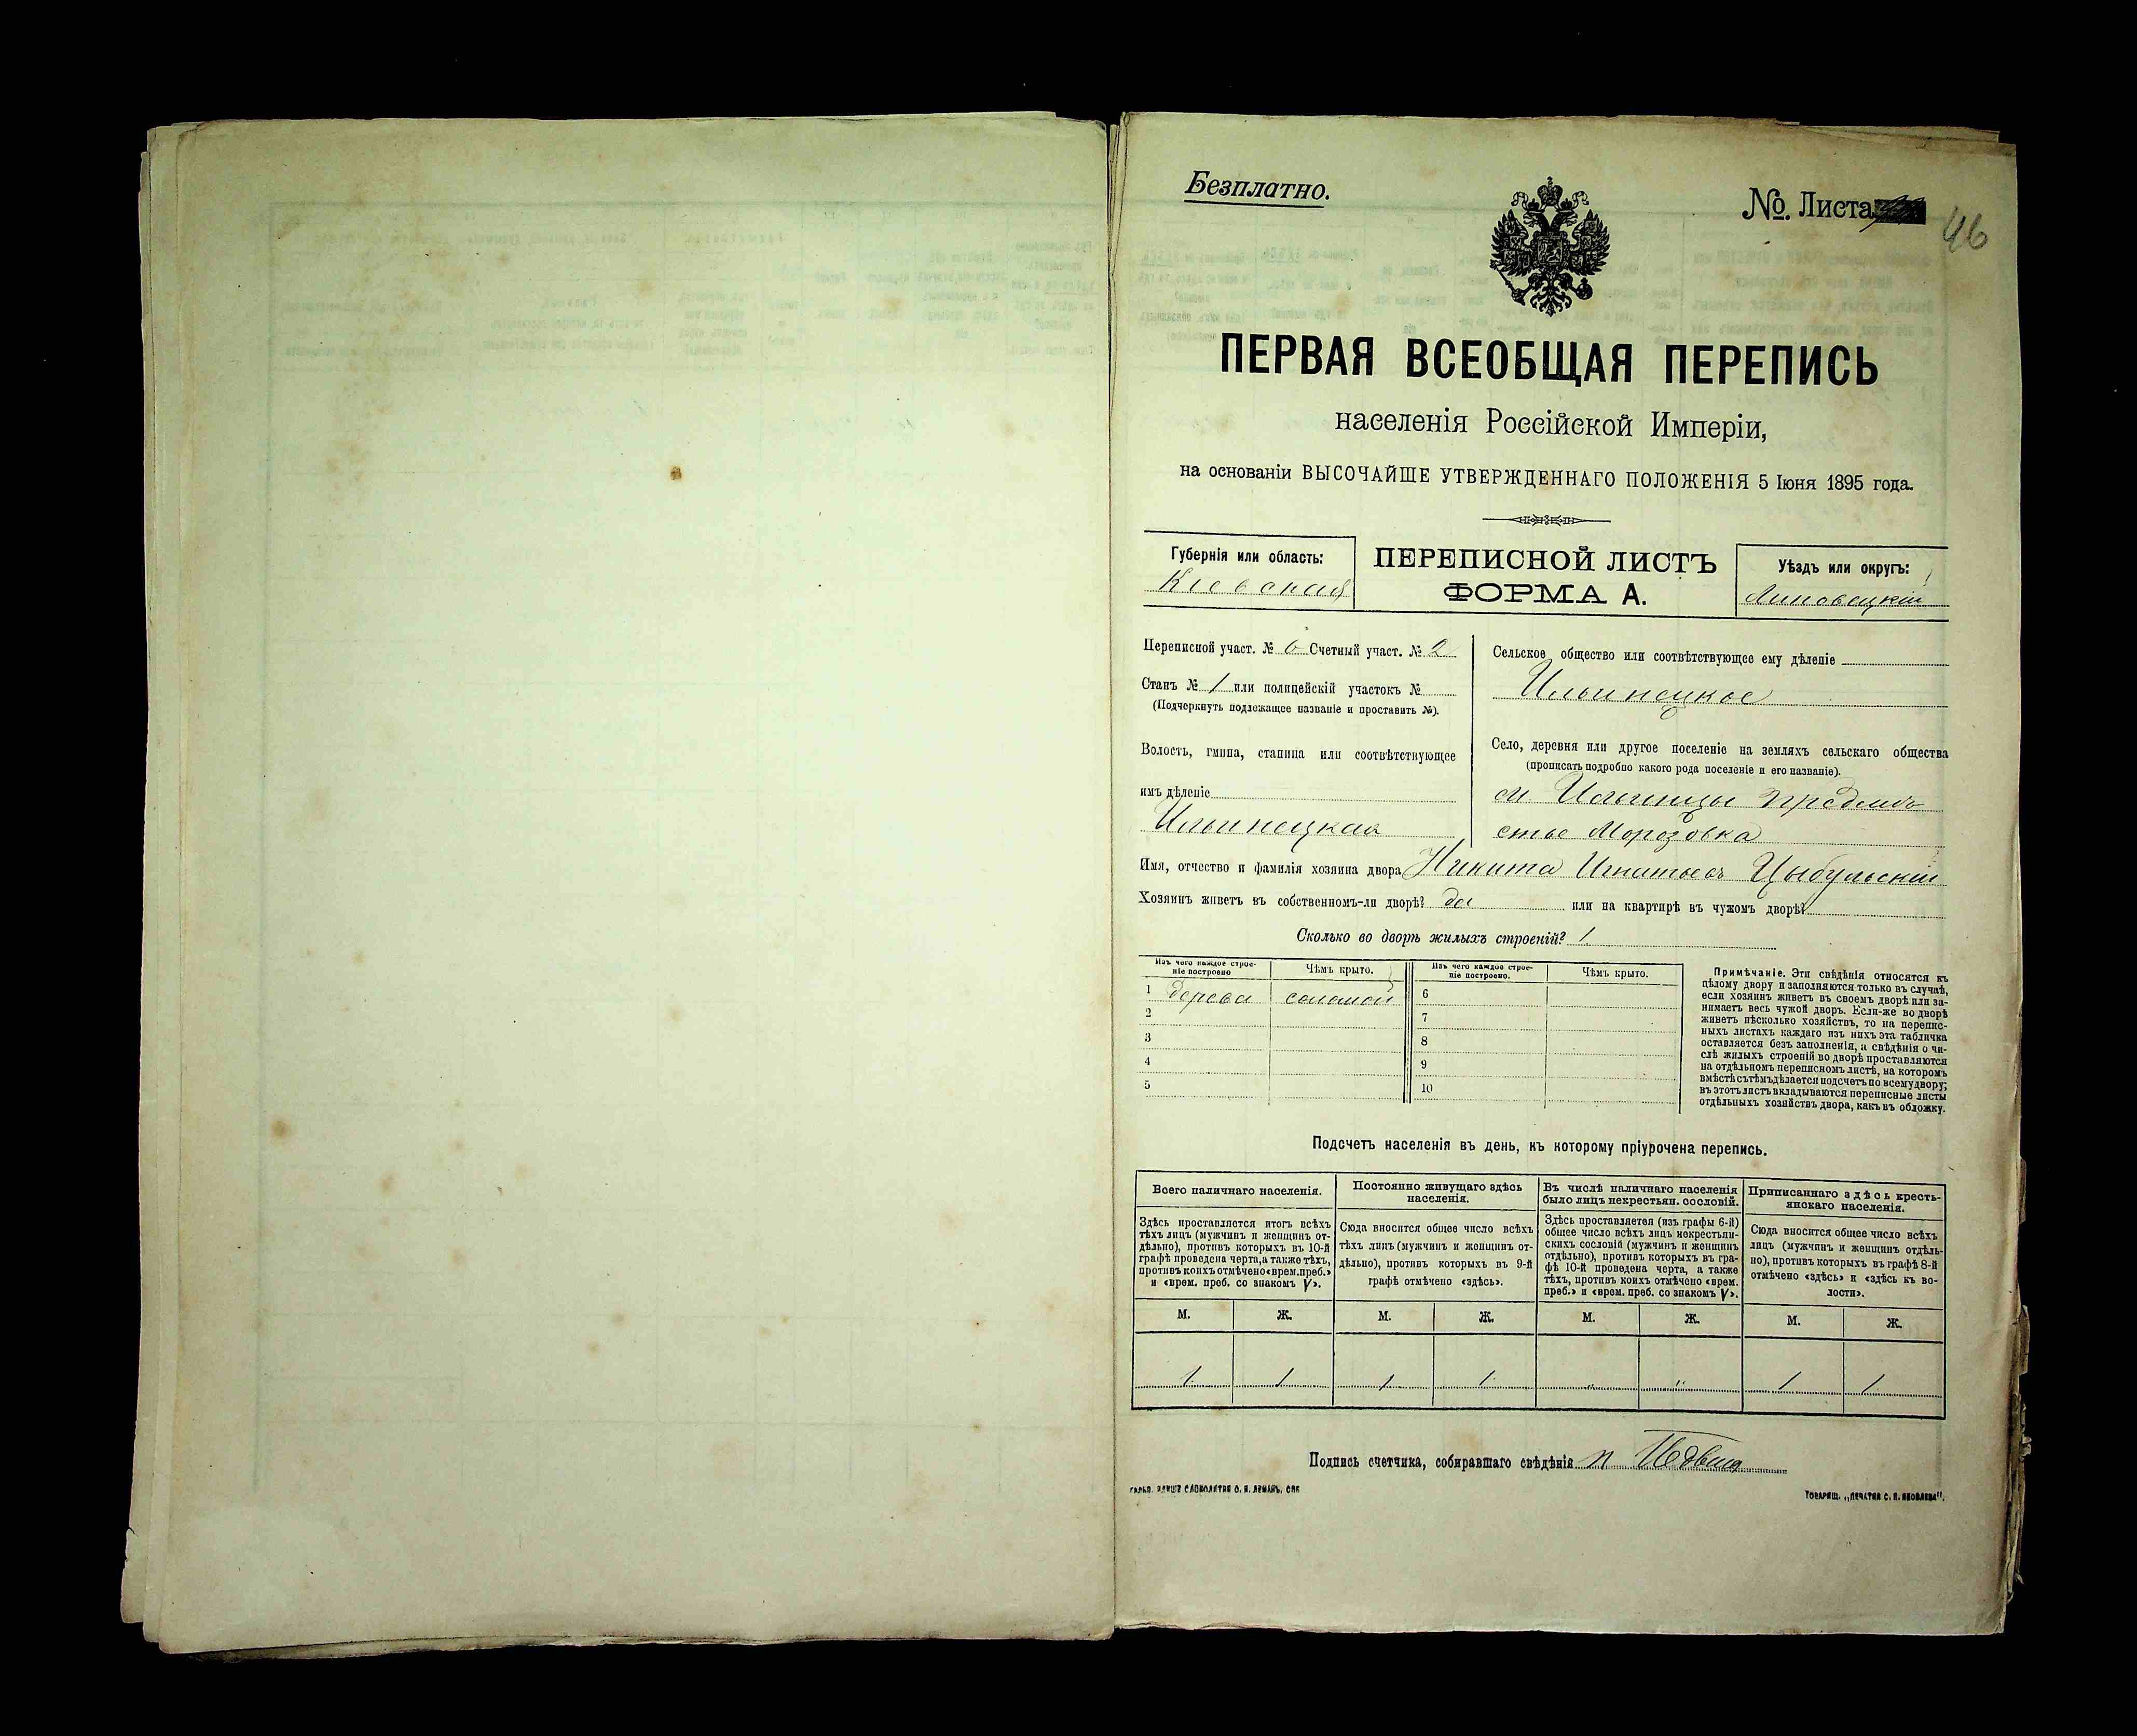 Безплатно.
№. Листа
46
ПЕРВАЯ ВСЕОБЩАЯ ПЕРЕПИСЬ
населенія Россійской Имперіи,
на основаніи ВЫСОЧАЙШЕ УТВЕРЖДЕННАГО ПОЛОЖЕНІЯ 5 Іюня 1895 года.
Губернія или область:
Кіевская
ПЕРЕПИСНОЙ ЛИСТЪ
ФОРМА А.
Уѣздъ или округъ:
Липовецкій
Переписной участ. № 6 Счетный участ. № 2
Станъ № 1 или полицейскій участокъ №
(Подчеркнуть подлежащее названіе и проставить №).
Волость, гмина, станица или соотвѣтствующее
имъ дѣленіе
Ильинецкая
Сельское общество или соотвѣтствующее ему дѣленіе
Ильинецкое
Село, деревня или другое поселеніе на земляхъ сельскаго общества
(прописать подробно какого рода поселеніе и его названіе).
м. Ильинцы предмѣ
стье Морозовка
Имя, отчество и фамилія хозяина двора Никита Игнатьевъ Цыбульскій
Хозяинъ живетъ въ собственномъ-ли дворѣ? да или на квартирѣ въ чужомъ дворѣ?
Сколько во дворѣ жилыхъ строеній? 1
Изъ чего каждое строе-
ніе построено
Чѣмъ крыто.
Изъ чего каждое строе-
ніе построено.
Чѣмъ крыто.
1 дерева соломой
2
3
4
5
6
7
8
9
10
Примѣчаніе. Эти свѣдѣнія относятся къ
цѣлому двору и заполняются только въ случаѣ,
если хозяинъ живетъ въ своемъ дворѣ или за-
нимаетъ весь чужой дворъ. Если-же во дворѣ
живетъ нѣсколько хозяйствъ, то на перепис-
ныхъ листахъ каждаго изъ нихъ эта табличка
оставляется безъ заполненія, а свѣдѣнія о чи-
слѣ жилыхъ строеній во дворѣ проставляются
на отдѣльномъ переписномъ листѣ, на которомъ
вмѣстѣ съ тѣмъ дѣлается подсчетъ по всему двору;
въ этотъ листъ вкладываются переписные листы
отдѣльныхъ хозяйствъ двора, какъ въ обложку.
Подсчетъ населенія въ день, къ которому пріурочена перепись.
Всего наличнаго населенія.
Здѣсь проставляется итогъ всѣхъ
тѣхъ лицъ (мужчинъ и женщинъ от-
дѣльно), противъ которыхъ въ 10-й
графѣ проведена черта, а также тѣхъ,
противъ коихъ отмѣчено «врем. преб.»
и «врем. преб. со знакомъ V».
Постоянно живущаго здѣсь
населенія.
Сюда вносится общее число всѣхъ
тѣхъ лицъ (мужчинъ и женщинъ от-
дѣльно), противъ которыхъ въ 9-й
графѣ отмѣчено «здѣсь».
Въ числѣ наличнаго населенія
было лицъ некрестьян. сословій.
Здѣсь проставляется (изъ графы 6-й)
общее число всѣхъ лицъ некрестьян-
скихъ сословій (мужчинъ и женщинъ
отдѣльно), противъ которыхъ въ гра-
фѣ 10-й проведена черта, а также
тѣхъ, противъ коихъ отмѣчено «врем.
преб.» и «врем. преб. со знакомъ V».
Приписаннаго здѣсь кресть-
янскаго населенія.
Сюда вносится общее число всѣхъ
лицъ (мужчинъ и женщинъ отдѣль-
но), противъ которыхъ въ графѣ 8-й
отмѣчено «здѣсь» и «здѣсь въ во-
лости».
М. Ж. М. Ж. М. Ж. М. Ж.
1 1 1 1 " " 1 1
Подпись счетчика, собиравшаго свѣдѣнія
ТОВАРИЩ. „ПЕЧАТНЯ С. П. ЯКОВЛЕВА".